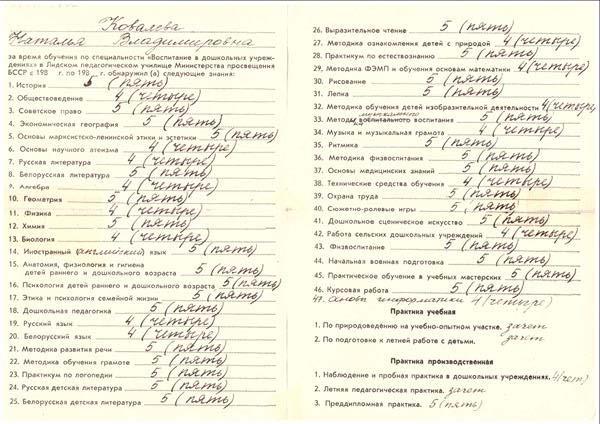 Ковалева
Наталья Владимировна
за время обучения по специальности «Воспитание в дошкольных учреж-
дениях» в Лидском педагогическом училище Министерства просвещения
БССР с 198 г. по 198 г. обнаружил (а) следующие знания:
1. История 5 (пять)
2. Обществоведение 4 (четыре)
3. Советское право 5 (пять)
4. Экономическая география 5 (пять)
5. Основы марксистско-ленинской этики и эстетики 5 (пять)
6. Основы научного атеизма 4 (четыре)
7. Русская литература 4 (четыре)
8. Белорусская литература 5 (пять)
9. Алгебра 4 (четыре)
10. Геометрия 5 (пять)
11. Физика 4 (четыре)
12. Химия 5 (пять)
13. Биология 4 (четыре)
14. Иностранный (английский) язык 5 (пять)
15. Анатомия, физиология и гигиена
детей раннего и дошкольного возраста 5 (пять)
16. Психология детей раннего и дошкольного возраста 5 (пять)
17. Этика и психология семейной жизни 5 (пять)
18. Дошкольная педагогика 5 (пять)
19. Русский язык 4 (четыре)
20. Белорусский язык 4 (четыре)
21. Методика развития речи 5 (пять)
22. Методика обучения грамоте 5 (пять)
23. Практикум по логопедии 5 (пять)
24. Русская детская литература 5 (пять)
25. Белорусская детская литература 5 (пять)
26. Выразительное чтение 5 (пять)
27. Методика ознакомления детей с природой 4 (четыре)
28. Практикум по естествознанию 5 (пять)
29. Методика ФЭМП и обучения основам математики 4 (четыре)
30. Рисование 5 (пять)
31. Лепка 5 (пять)
32. Методика обучения детей изобразительной деятельности 4 (четыре)
33. Методы музыкального воспитания 5 (пять)
34. Музыка и музыкальная грамота 4 (четыре)
35. Ритмика 5 (пять)
36. Методика физвоспитания 5 (пять)
37. Основы медицинских знаний 5 (пять)
38. Технические средства обучения 4 (четыре)
39. Охрана труда 5 (пять)
40. Сюжетно-ролевые игры 5 (пять)
41. Дошкольное сценическое искусство 5 (пять)
42. Работа сельских дошкольных учреждений 4 (четыре)
43. Физвоспитание 5 (пять)
44. Начальная военная подготовка 5 (пять)
45. Практическое обучение в учебных мастерских 5 (пять)
46. Курсовая работа 5 (пять)
47. Основы информатики 4 (четыре)
Практика учебная
1. По природоведению на учебно-опытном участке. зачет
2. По подготовке к летней работе с детьми. зачет
Практика производственная
1. Наблюдение и пробная практика в дошкольных учреждениях. 4 (чет.)
2. Летняя педагогическая практика. зачет
3. Преддипломная практика. 5 (пять)